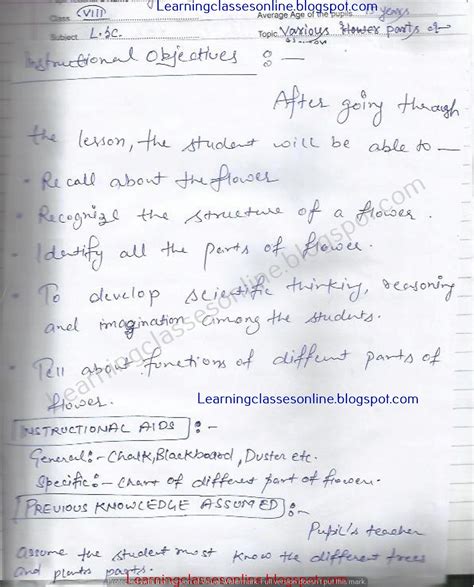 Learningclassesonline.blogspot.com
Class VIII Average Age of the pupils 13 years
Subject L.Sc. Topic Various flower parts of
Instructional Objectives :-
After going through
the lesson, the student will be able to —
• Recall about the flower
• Recognize the structure of a flower.
• Identify all the parts of flower.
• To develop scientific thinking, reasoning
and imagination among the students.
• Tell about functions of different parts of
flower.
Learningclassesonline.blogspot.com
Learningclassesonline.blogspot.com
INSTRUCTIONAL AIDS :-
General:- Chalk, Blackboard, Duster etc.
Specific:- Chart of different part of flower.
PREVIOUS KNOWLEDGE ASSUMED :-
Pupil's teacher
assume the student must know the different trees
and plants parts.
Learningclassesonline.blogspot.com